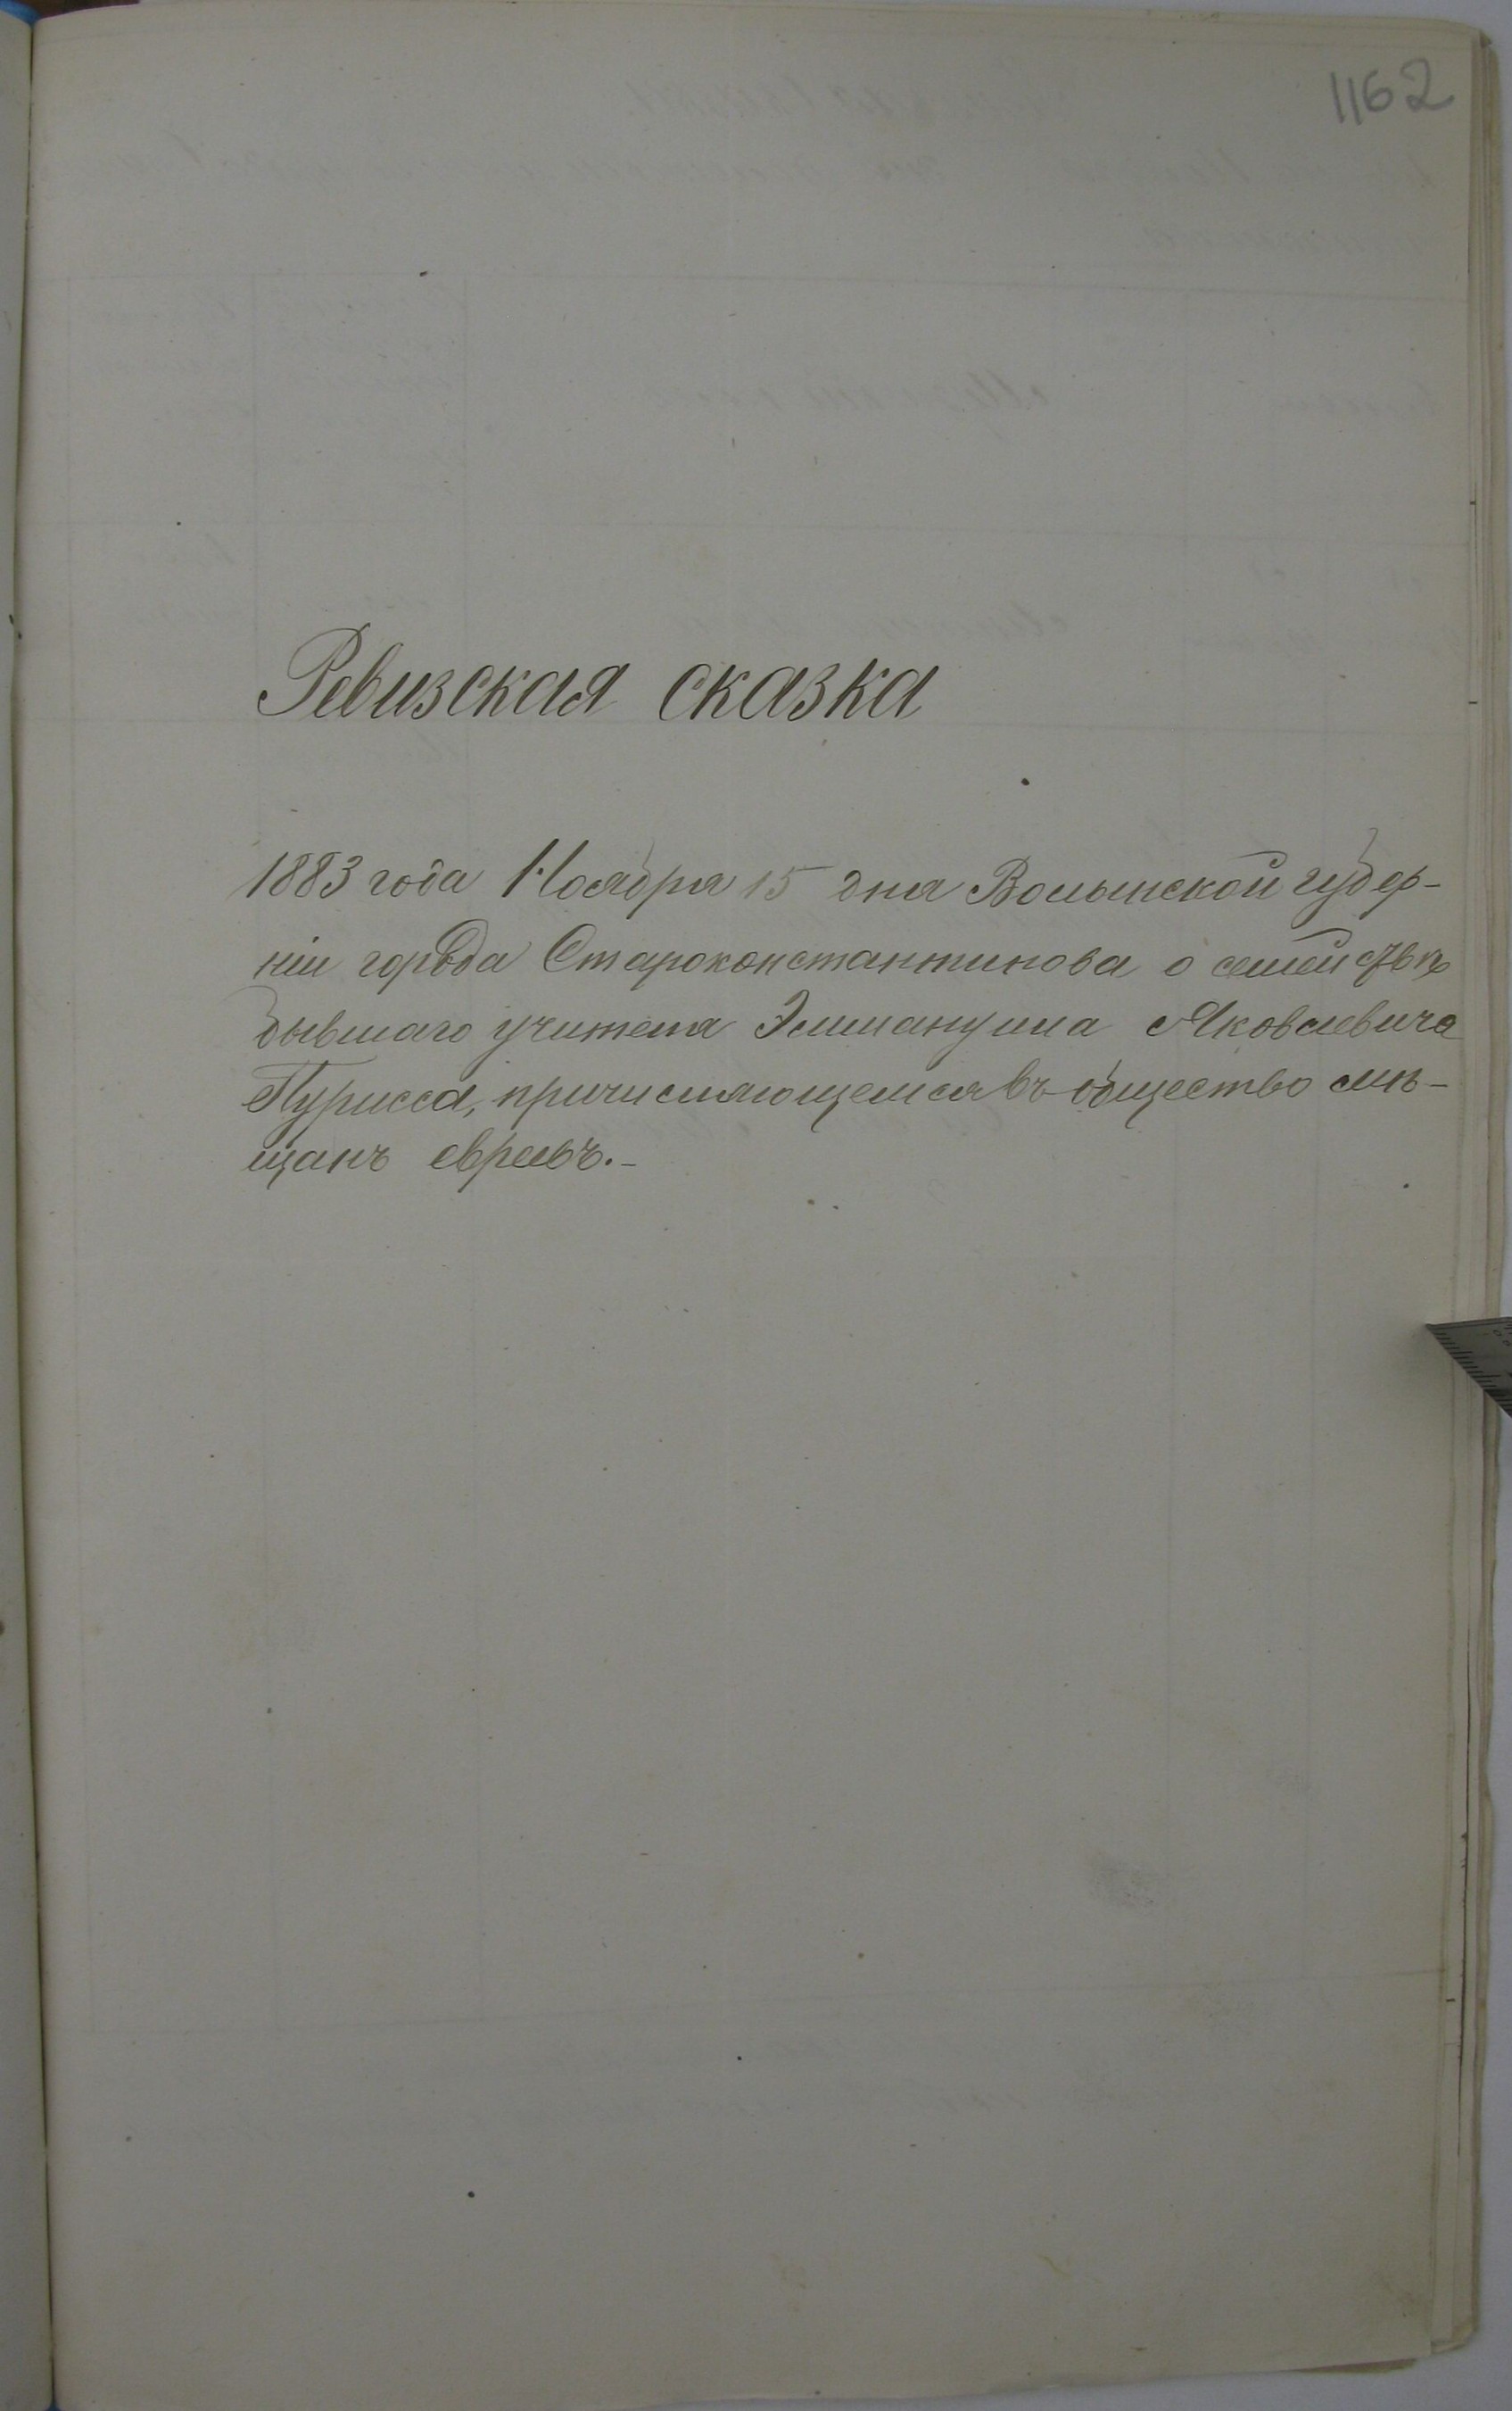 1162
Ревизская сказка
1883 года Ноября 15 дня Волынской губер-
ніи города Староконстантинова о семействѣ
бывшаго учителя Эммануила Яковлевича
Пурисса, причисляющемся въ общество мѣ-
щанъ евреевъ.-